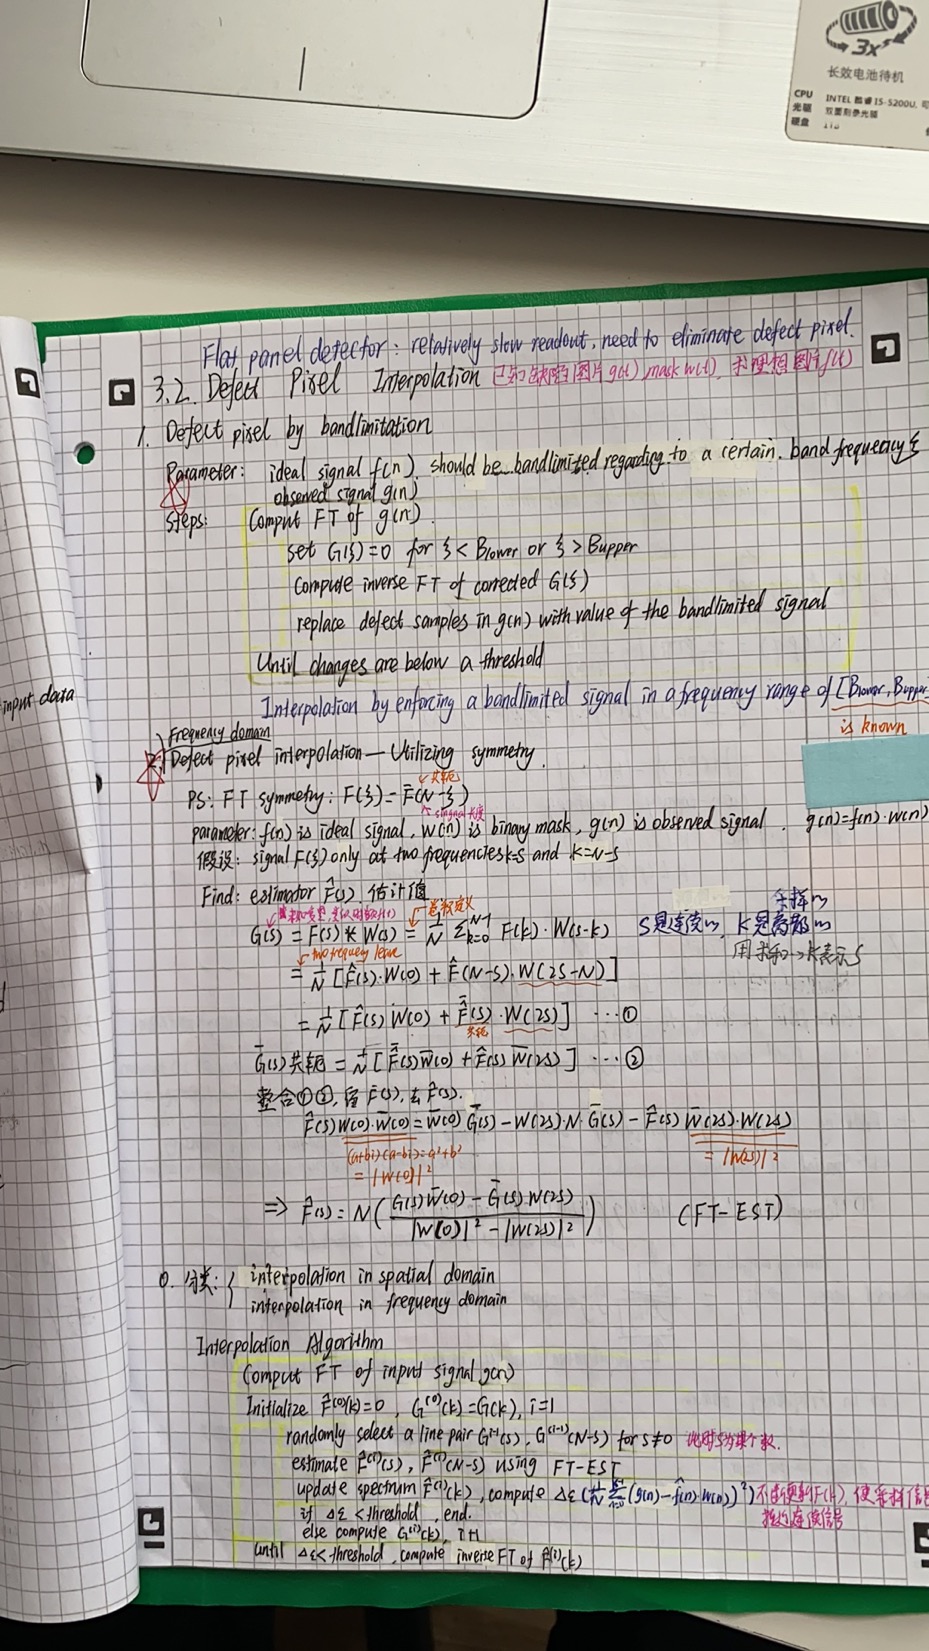 3x
长效电池待机
CPU INTEL 酷睿 I5-5200U, 可
光驱 双面刻录光驱
硬盘
Flat panel detector: relatively slow readout, need to eliminate defect pixel.
3.2. Defect Pixel Interpolation 已知缺陷图片g(t), mask w(t), 求理想图片f(t)
1. Defect pixel by bandlimitation
Parameter: ideal signal f(n), should be bandlimited regarding to a certain band frequency ξ
observed signal g(n)
Steps: Comput FT of g(n).
set G(ξ)=0 for ξ < Blower or ξ > Bupper
Compute inverse FT of corrected G(ξ)
replace defect samples in g(n) with value of the bandlimited signal
Until changes are below a threshold
input data
Interpolation by enforcing a bandlimited signal in a frequency range of [Blower, Bupper]
is known
Frequency domain
2. Defect pixel interpolation — Utilizing symmetry.
共轭
PS: FT symmetry: F(ξ) = F̄(N-ξ)
signal长度
parameter: f(n) is ideal signal, w(n) is binary mask, g(n) is observed signal. g(n)=f(n)·w(n)
假设: signal F(ξ) only at two frequencies k=s and k=N-s
Find: estimator F̂(s), 估计值
卷积定义
G(s) = F(s) * W(s) = 1/N Σ_{k=0}^{N-1} F(k)·W(s-k) S是连续的, K是离散的
two frequency leave
用求和→K表示S
= 1/N [F̂(s)·W(0) + F̂(N-s)·W(2s-N)]
= 1/N [F̂(s) W(0) + F̂̄(s)·W(2s)] ...①
共轭
Ḡ(s)共轭 = 1/N [F̂̄(s)W̄(0) + F̂(s) W̄(2s)] ...②
整合①②, 留F̂(s), 去F̂̄(s).
F̂(s)W(0)·W̄(0) = W̄(0) Ḡ(s) - W(2s)·N·Ḡ(s) - F̂(s) W̄(2s)·W(2s)
(a+bi)(a-bi)=a²+b²
= |W(0)|²
= |W(2s)|²
⇒ F̂(s) = N( (G(s)W̄(0) - Ḡ(s)W(2s)) / (|W(0)|² - |W(2s)|²) ) (FT-EST)
0. 分类: { interpolation in spatial domain
interpolation in frequency domain
Interpolation Algorithm
Comput FT of input signal g(n)
Initialize F̂⁽⁰⁾(k)=0, G⁽⁰⁾(k)=G(k), i=1
randomly select a line pair G⁽ⁱ⁻¹⁾(s), G⁽ⁱ⁻¹⁾(N-s) for s≠0 此时S为某个数.
estimate F̂⁽ⁱ⁾(s), F̂⁽ⁱ⁾(N-s) using FT-EST
update spectrum F̂⁽ⁱ⁾(k), compute Δε (1/N Σ (g(n)-f̂(n)·w(n))²) 不断更新F(k), 使采样信号
接近连续信号
if Δε < threshold, end.
else compute G⁽ⁱ⁾(k), i+1
until Δε < threshold, compute inverse FT of F̂⁽ⁱ⁾(k)